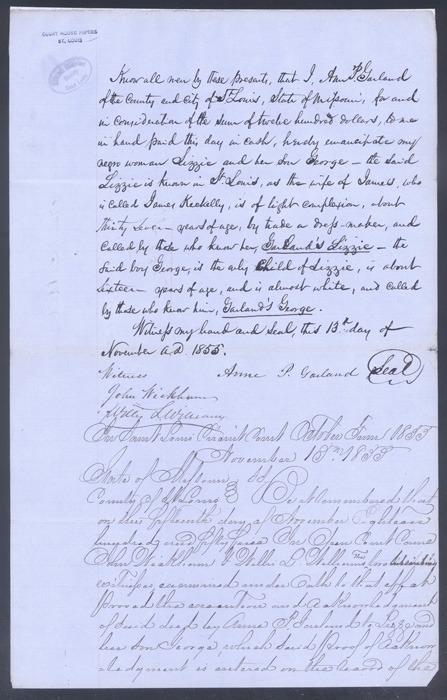 COURT HOUSE PAPERS
ST. LOUIS
Know all men by these presents, that I, Ann P. Garland
of the County and City of St Louis, State of Missouri, for and
in consideration of the sum of twelve hundred dollars, to me
in hand paid this day in cash, hereby emancipate my
negro woman Lizzie and her son George – the said
Lizzie is known in St. Louis, as the wife of James, who
is called James Keckelly, is of light complexion, about
thirty seven – years of age, by trade a dress-maker, and
called by those who know her, Garland's Lizzie – the
said boy George, is the only child of Lizzie, is about
sixteen – years of age, and is almost white, and called
by those who know him, Garland's George.
Witness my hand and seal, this 13th day of
November A.D. 1855.
Witness Anne P. Garland Seal
John Wickham
L Williams
In Saint Louis Circuit Court October Term 1855
November 15th 1855
State of Missouri ss
County of St Louis Be it remembered that
on this fifteenth day of November Eighteen
hundred and fifty five In Open Court Came
John Wickham & Willis L Williams two subscribing
witnesses, examined under Oath to that effect
proved the execution and acknowledgment
of said deed by Anne P Garland to Lizzie and
her son George, which said proof of acknow
ledgment is entered on the record of the